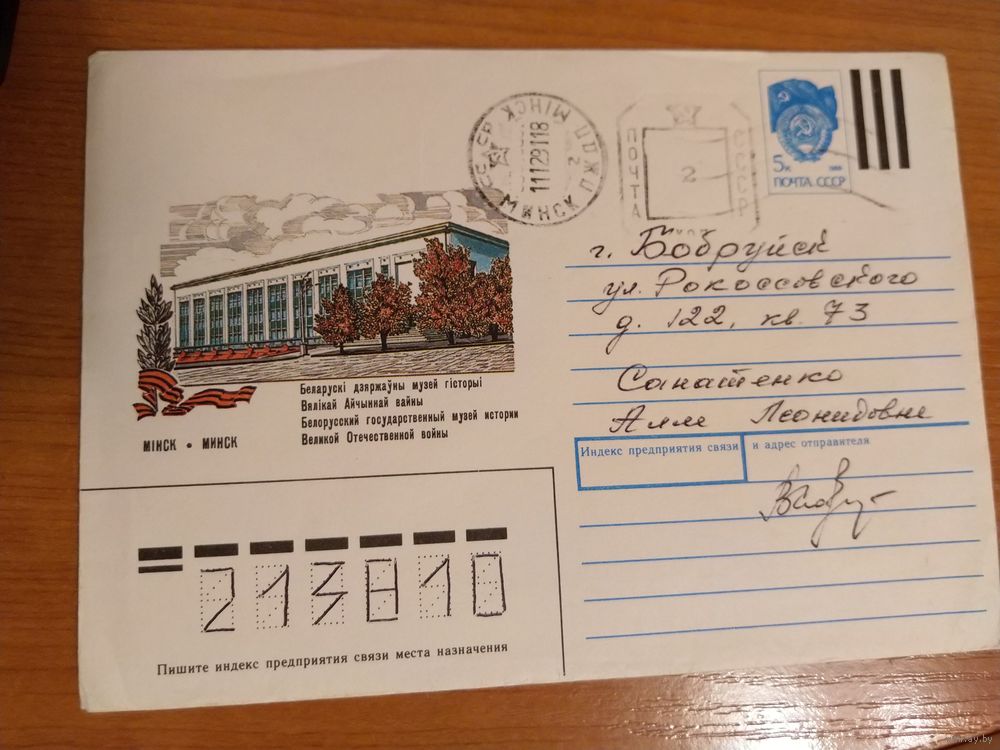 СССР МІНСК ПОЖД
1112911 18
2
МИНСК
ПОЧТА
СССР
2
5к 1988
ПОЧТА СССР
г. Бобруйск
ул. Рокоссовского
д. 122, кв. 73
Санатенко
Алле Леонидовне
Беларускі дзяржаўны музей гісторыі
Вялікай Айчыннай вайны
Белорусский государственный музей истории
Великой Отечественной войны
МІНСК • МИНСК
Индекс предприятия связи и адрес отправителя
213810
Пишите индекс предприятия связи места назначения